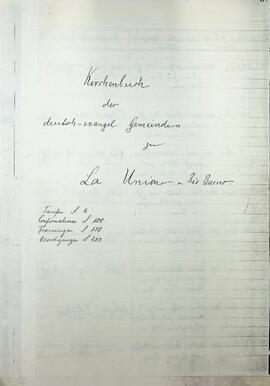 Kirchenbuch
der
deutsch-evangel Gemeinden
zu
La Union u Rio Bueno.
Taufen S 4
Confirmationen S 100
Trauungen S 130
Beerdigungen S 200